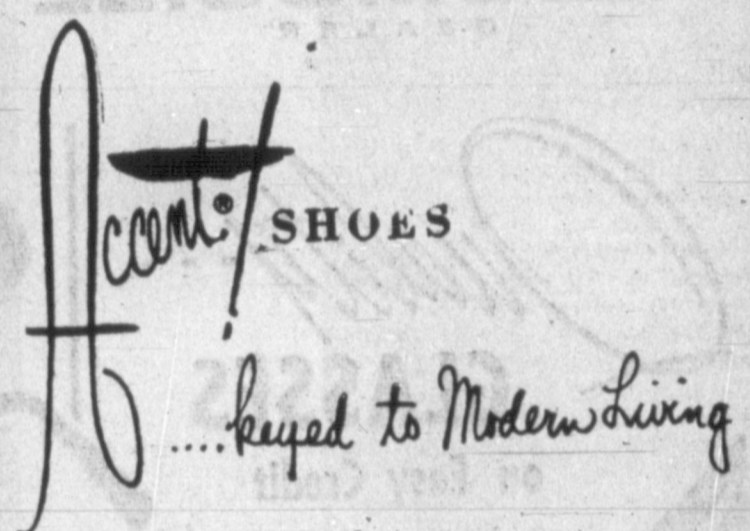 Accent® ! SHOES
....keyed to Modern Living